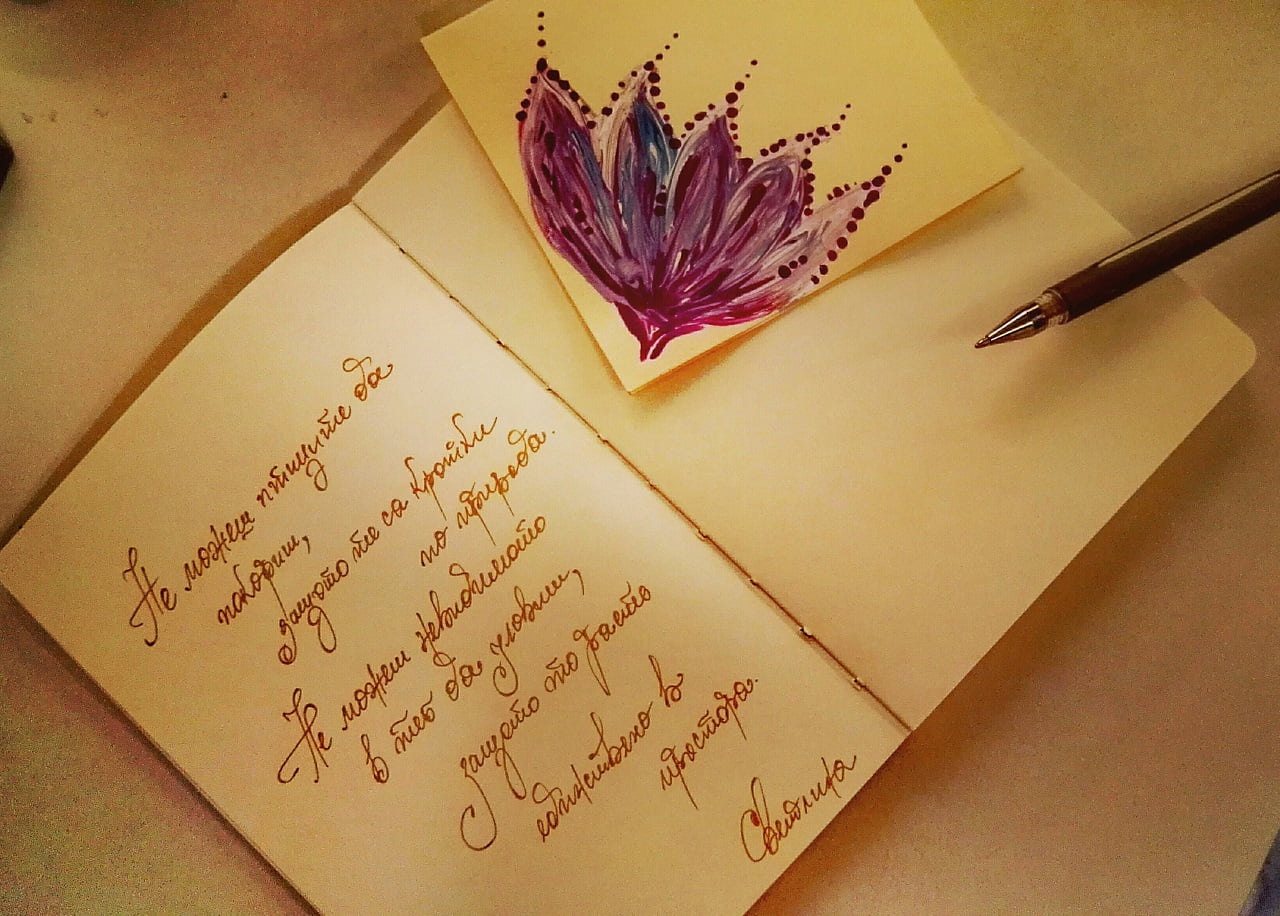 Не можеш птиците да
покориш,
защото те са кротки
по природа.
Не можеш невидимото
в теб да уловиш,
защото то расте
единствено в
простора.
Светлина